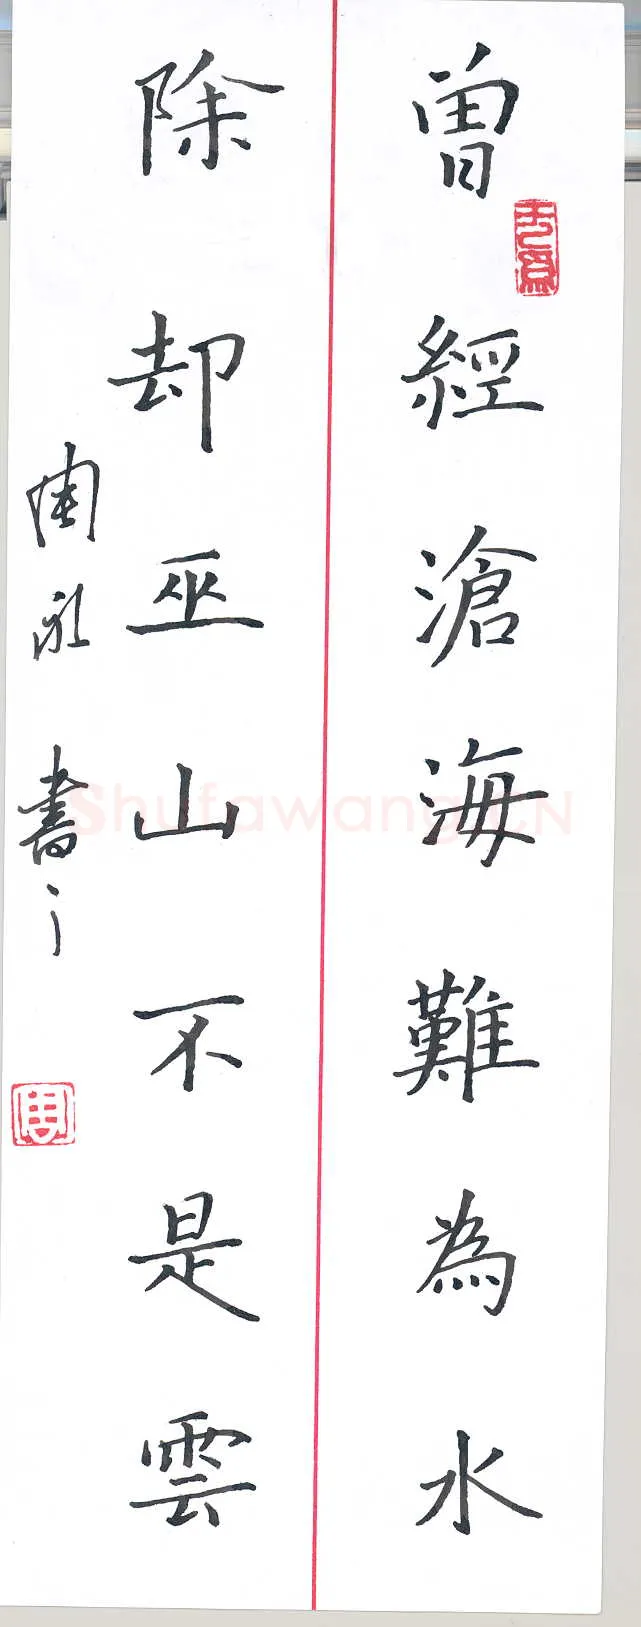 曾經滄海難為水
除却巫山不是雲
周永書之
Shufawang.CN